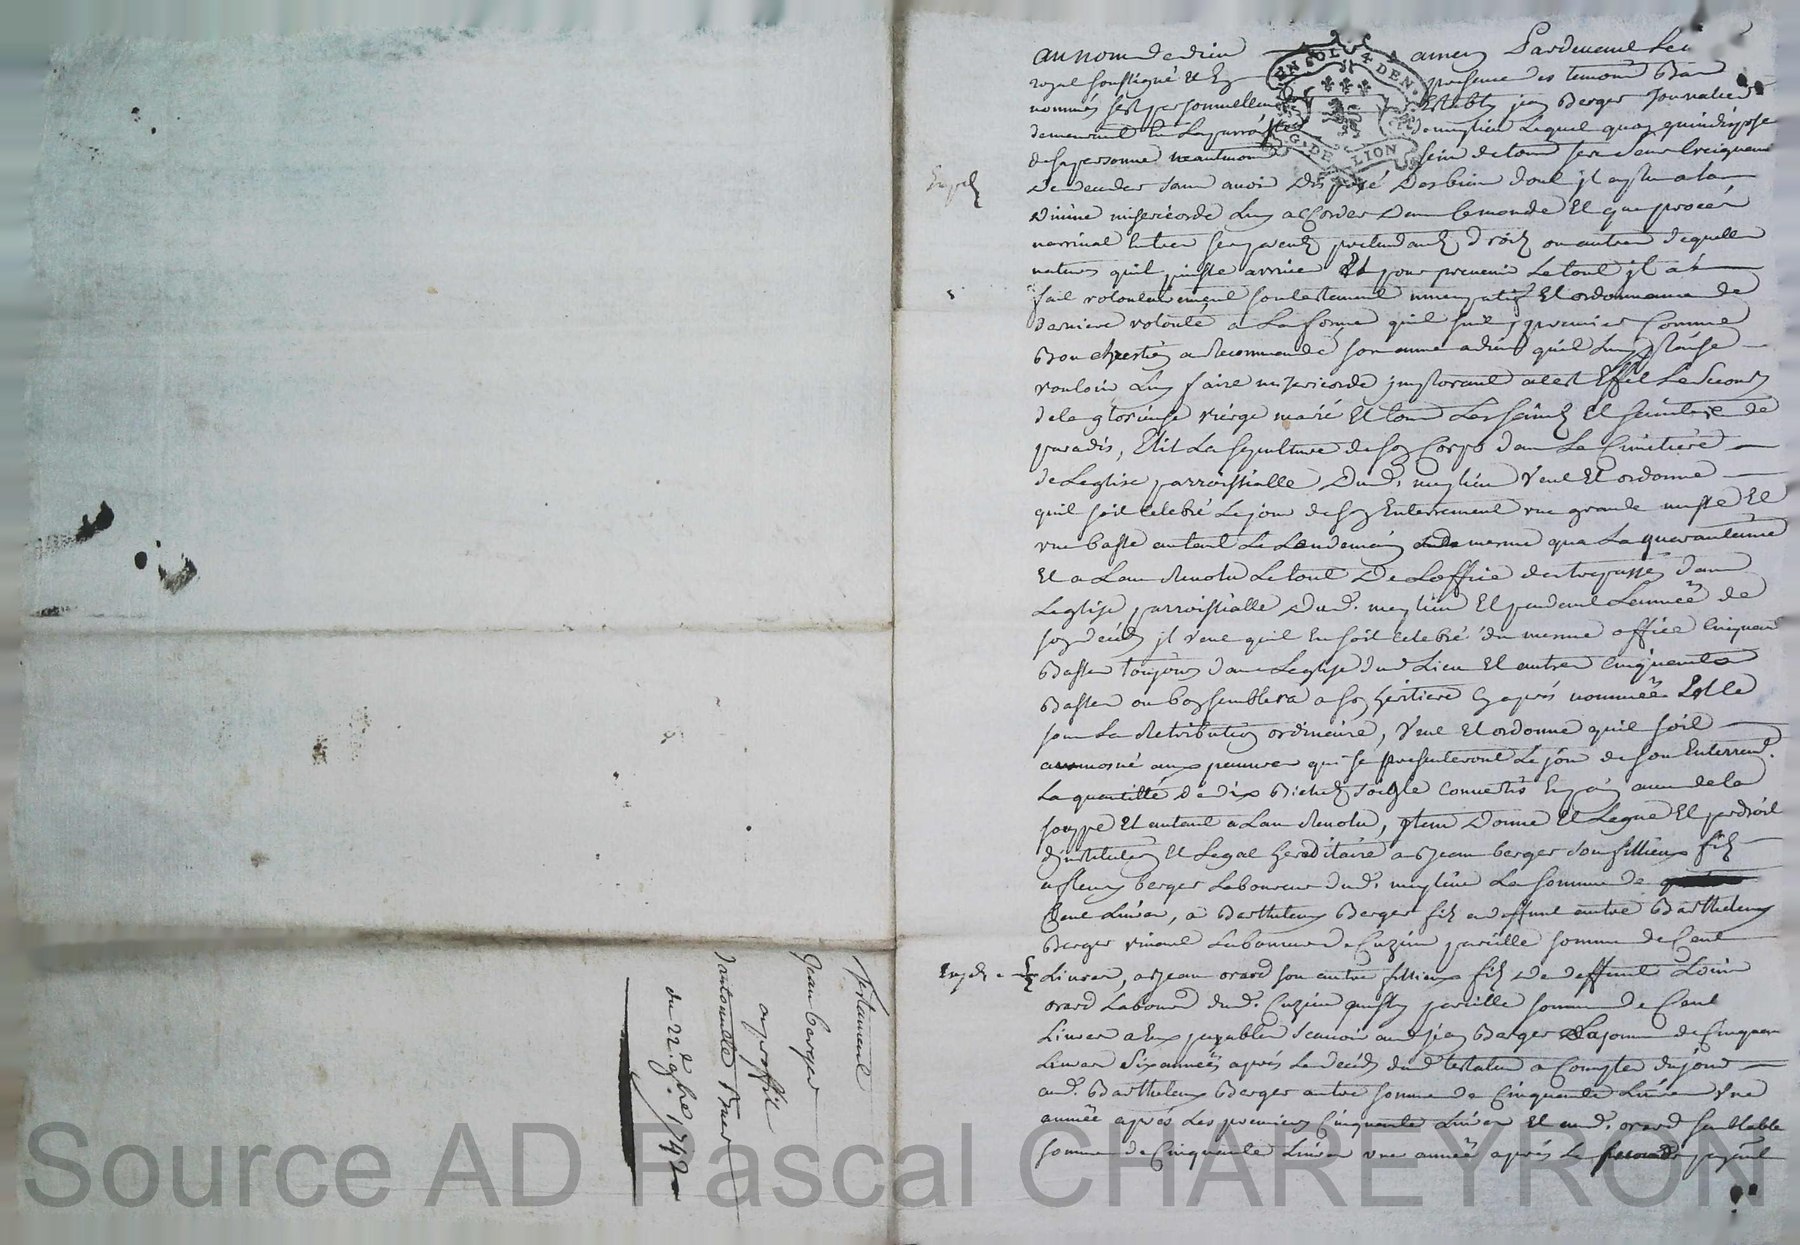 au nom de dieu amen Pardevant
royal soussigné et En presence des temoins Bas
nommés fest personnellement Estably jean Berger Journalier
demeurant En Laparroisse de meylieu Lequel quoy quindispose
de sa personne neautmoins sein de tous ses sens Creignant
De deceder sans avoir Disposé Des biens dont jl a plu a la
divine misericorde Luy accorder Dans le monde Et que procés
narrivat Entre ses parents pretendants droits ou autres dequelle
natures quil puisse arriver Et pour prevenir Le tout jl a
fait volontairement son testament nuncupatif Et ordonnance de
derniere volonté a La forme quil suit, premier Comme
Bon chrestien a Recommandé son ame a dieu quil Luy plaise
vouloir Luy faire misericorde jmplorant a cest Effet Le Secours
de la glorieuse vierge marie Et tous Les saints Et saintes de
paradis, Elit La sepulture de son Corps dans Le Cimetiere
de Leglise parroissialle Dud. meylieu Veut Et ordonne
quil soit celebré Le jour de son Enterrement une grande messe Et
une basse autant Le Lendemain de mesme qua La quarantaine
Et a Lan Revolu Le tout De Loffice des trepassés dans
Leglise parroissialle Dud. meylieu Et pendant Lannée de
son decéds jl veut quil En soit celebré du mesme office Cinquante
Basses toujours dans Leglise dud Lieu Et autres Cinquantes
Basses ou bon semblera a son heritiere Cy aprés nommée
sous La Retribution ordinaire, Veut Et ordonne quil soit
aumosné aux pauvres qui se presenteront Le jour de son Enterremt.
La quantitté De dix Bichets soigle Convertis En pain avec de la
souppe Et autant a Lan Revolu, jtem Donne Et Legue Et par droit
djnstitution Et Legat hereditaire a Jean berger son fillieux fils
a fleury berger Laboureur dud. meylieu La somme de
Cent Livres, a Barthelemy Berger fils a deffunt autre Barthelemy
Berger vivant Laboureur a Cuzieu pareille somme de Cent
Livres, a Jean orard son autre fillieux fils De deffunt Louis
orard Labour. dud. Cuzieu aussy pareille somme de Cent
Livres a Eux payables scavoir aud jean Berger La somme de Cinquante
Livres six années aprés Le decéds dud testateur a Compter du jour
aud. Barthelemy Berger autre somme de Cinquante Livres Une
année aprés Les premiers Cinquante Livres Et aud. orard semblable
somme de Cinquante Livres une année aprés Le second payent
UN SOL 4 DEN.
G. DE LION
Testament
Jean berger
au proffit
dantoinette
du 22e. 9bre 1742
Source AD Pascal CHAREYRON